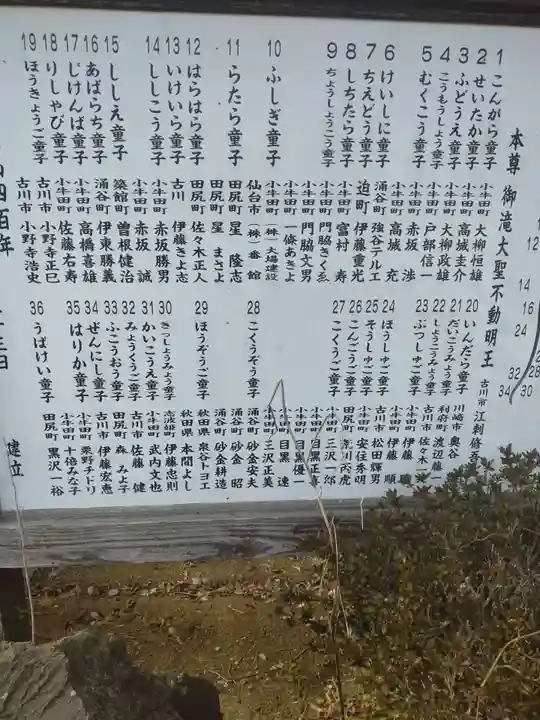 本尊 御滝大聖不動明王 古川市 江刺修吾
1 こんがら童子 小牛田町 大柳恒雄
2 せいたか童子 小牛田町 高城圭介
3 ふどうえ童子 小牛田町 大柳政雄
4 こうもうしょう童子 小牛田町 戸部信一
5 むくこう童子 小牛田町 赤坂渉
小牛田町 高城充
6 けいしに童子 涌谷町 強谷テルエ
7 ちえどう童子 迫町 伊藤重光
8 しちたら童子 小牛田町 富村寿
9 ちょうしょうこう童子 小牛田町 門脇きくゑ
小牛田町 門脇文男
小牛田町 一條あきよ
10 ふしぎ童子 小牛田町 (株)大場建設
仙台市 (株)番館
11 らたら童子 田尻町 星隆志
田尻町 星まさよ
12 はらはら童子 田尻町 佐々木正人
13 いけいら童子 古川 伊藤きよ志
14 ししこう童子 小牛田町 赤坂勝男
小牛田町 赤坂誠
15 ししえ童子 築館町 曽根健治
16 あばらち童子 涌谷町 伊東勝義
17 じけんば童子 小牛田町 高橋喜雄
18 りしゃび童子 小牛田町 佐藤右寿
19 ほうきょうご童子 古川市 小野寺正巳
古川市 小野寺浩史
20 いんだら童子 川崎市 奥谷
21 だいこうみょう童子 利府町 渡辺藤一
22 しょうこうみょう童子 古川市 佐々木
23 ぶつしゅご童子 小牛田町 伊藤
24 ほうしゅご童子 小牛田町 伊藤順
25 そうしゅご童子 古川市 松田輝男
26 こんごうご童子 小牛田町 安住秀明
27 こくうご童子 田尻町 荒川丙虎
小牛田町 三沢一郎
小牛田町 目黒正喜
小牛田町 目黒優一
小牛田町 目黒速
28 こくうぞう童子 小牛田町 三沢正美
涌谷町 砂金安夫
涌谷町 砂金昭
涌谷町 砂金耕造
29 ほうぞうご童子 秋田県 泉谷トヨエ
秋田県 本間よし
30 きっしょうみょう童子 志波姫町 伊藤忠則
31 かいこうえ童子 小牛田町 武内文也
32 みょうくうご童子 古川市 佐藤健
33 ふこうおう童子 田尻町 森みよ子
34 ぜんにし童子 古川市 伊藤宏恵
35 はりか童子 小牛田町 粟野チドリ
小牛田町 十倍みな子
36 うばけい童子 田尻町 黒沢一裕
四百年
建立
14
16
24
32
28
34
30